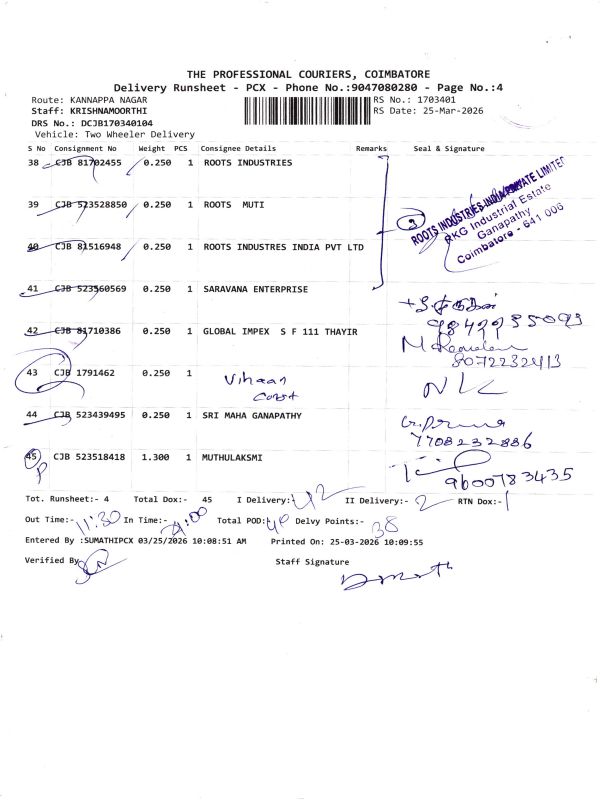 THE PROFESSIONAL COURIERS, COIMBATORE
Delivery Runsheet - PCX - Phone No.:9047080280 - Page No.:4
Route: KANNAPPA NAGAR RS No.: 1703401
Staff: KRISHNAMOORTHI RS Date: 25-Mar-2026
DRS No.: DCJB170340104
Vehicle: Two Wheeler Delivery
S No Consignment No Weight PCS Consignee Details Remarks Seal & Signature
38 CJB 81702455 0.250 1 ROOTS INDUSTRIES
39 CJB 523528850 0.250 1 ROOTS MUTI
3
ROOTS INDUSTRIES INDIA PRIVATE LIMITED
RKG Industrial Estate
Ganapathy
Coimbatore - 641 006
40 CJB 81516948 0.250 1 ROOTS INDUSTRES INDIA PVT LTD
41 CJB 523560569 0.250 1 SARAVANA ENTERPRISE
42 CJB 81710386 0.250 1 GLOBAL IMPEX S F 111 THAYIR
8072232413
43 CJB 1791462 0.250 1 Vihaan
44 CJB 523439495 0.250 1 SRI MAHA GANAPATHY
7708232886
45 CJB 523518418 1.300 1 MUTHULAKSMI
P
9600783435
Tot. Runsheet:- 4 Total Dox:- 45 I Delivery:- 42 II Delivery:- 2 RTN Dox:- 1
Out Time:- 11:30 In Time:- Total POD:- 40 Delvy Points:- 38
Entered By :SUMATHIPCX 03/25/2026 10:08:51 AM Printed On: 25-03-2026 10:09:55
Verified By Staff Signature